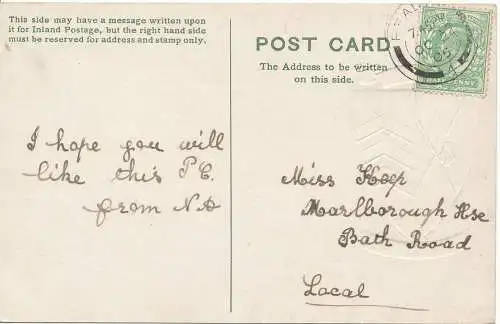 This side may have a message written upon
it for Inland Postage, but the right hand side
must be reserved for address and stamp only.
POST CARD
The Address to be written
on this side.
I hope you will
like this P.C.
from N A
Miss Keep
Marlborough Hse
Bath Road
Local